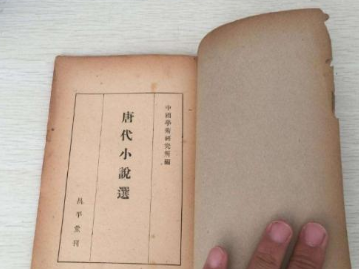 中國學術研究所編
唐代小說選
昌平堂刊